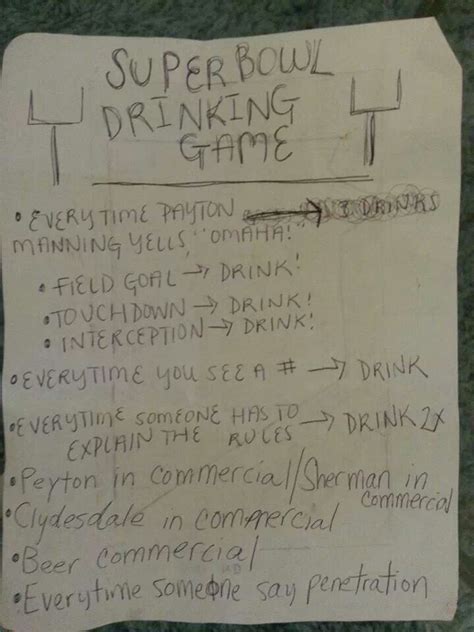 SUPERBOWL
DRINKING
GAME
• EVERYTIME PAYTON → 3 DRINKS
MANNING YELLS, "OMAHA!"
• FIELD GOAL → DRINK!
• TOUCHDOWN → DRINK!
• INTERCEPTION → DRINK!
• EVERYTIME YOU SEE A # → DRINK
• EVERYTIME SOMEONE HAS TO → DRINK 2X
EXPLAIN THE RULES
• Peyton in commercial/Sherman in
commercial
• Clydesdale in commercial
• Beer commercial
• Everytime someone say penetration